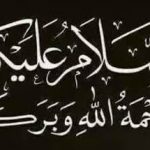 لسَّلَامُ عَلَيْك
حْمَةُ اللهِ وَبَرَكَ